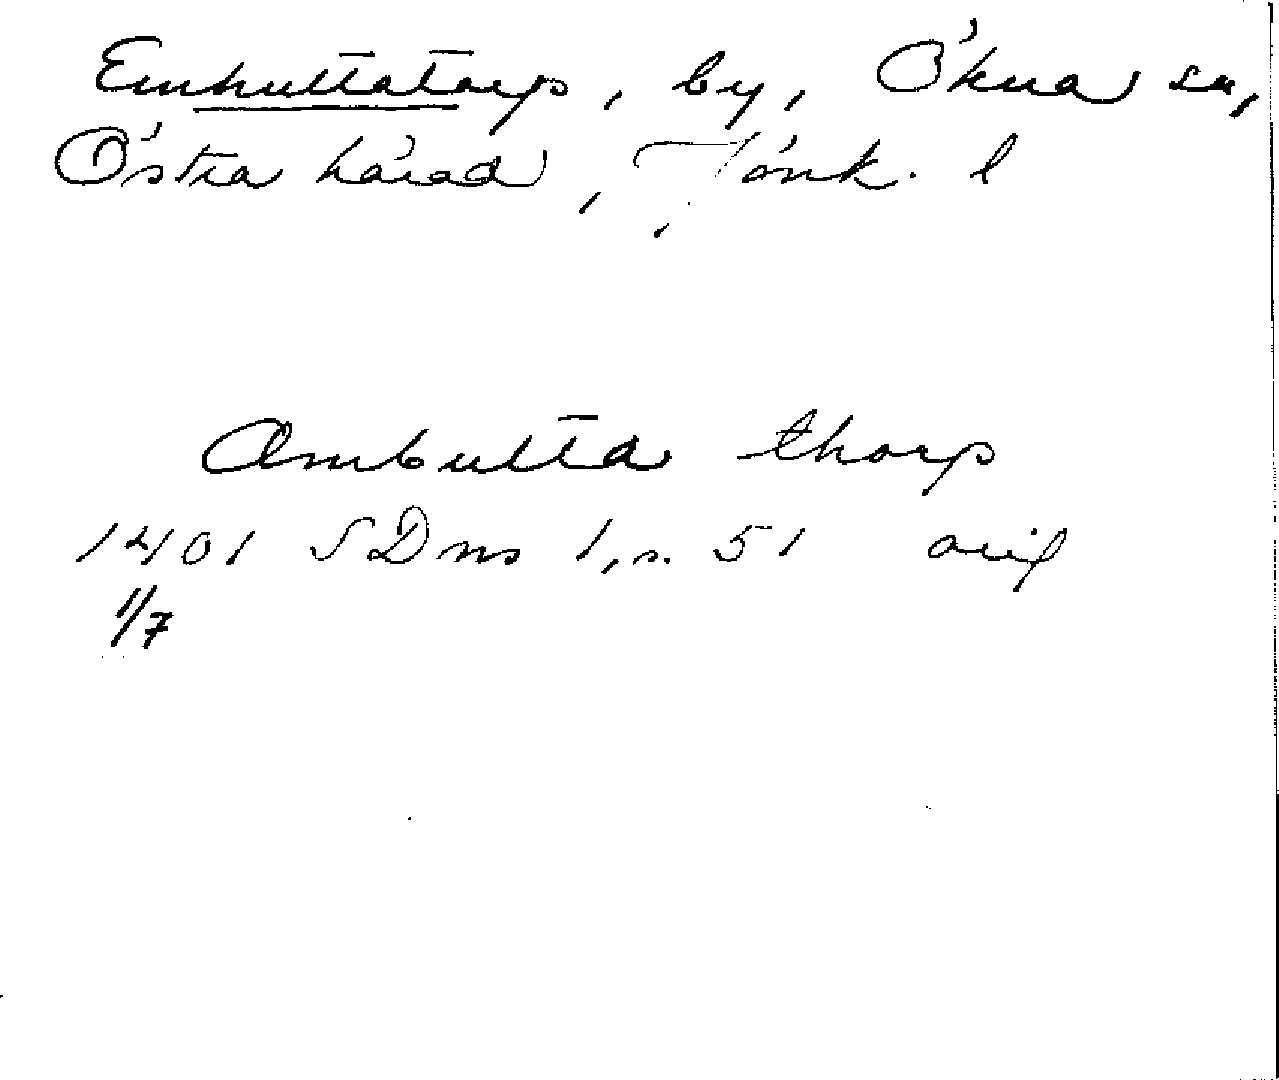 Emhultatorp, by, Ökna sn,
Östra härad, Jönk. l
Ambutta thorp
1401 SDns 1, s. 51 avil
1/7